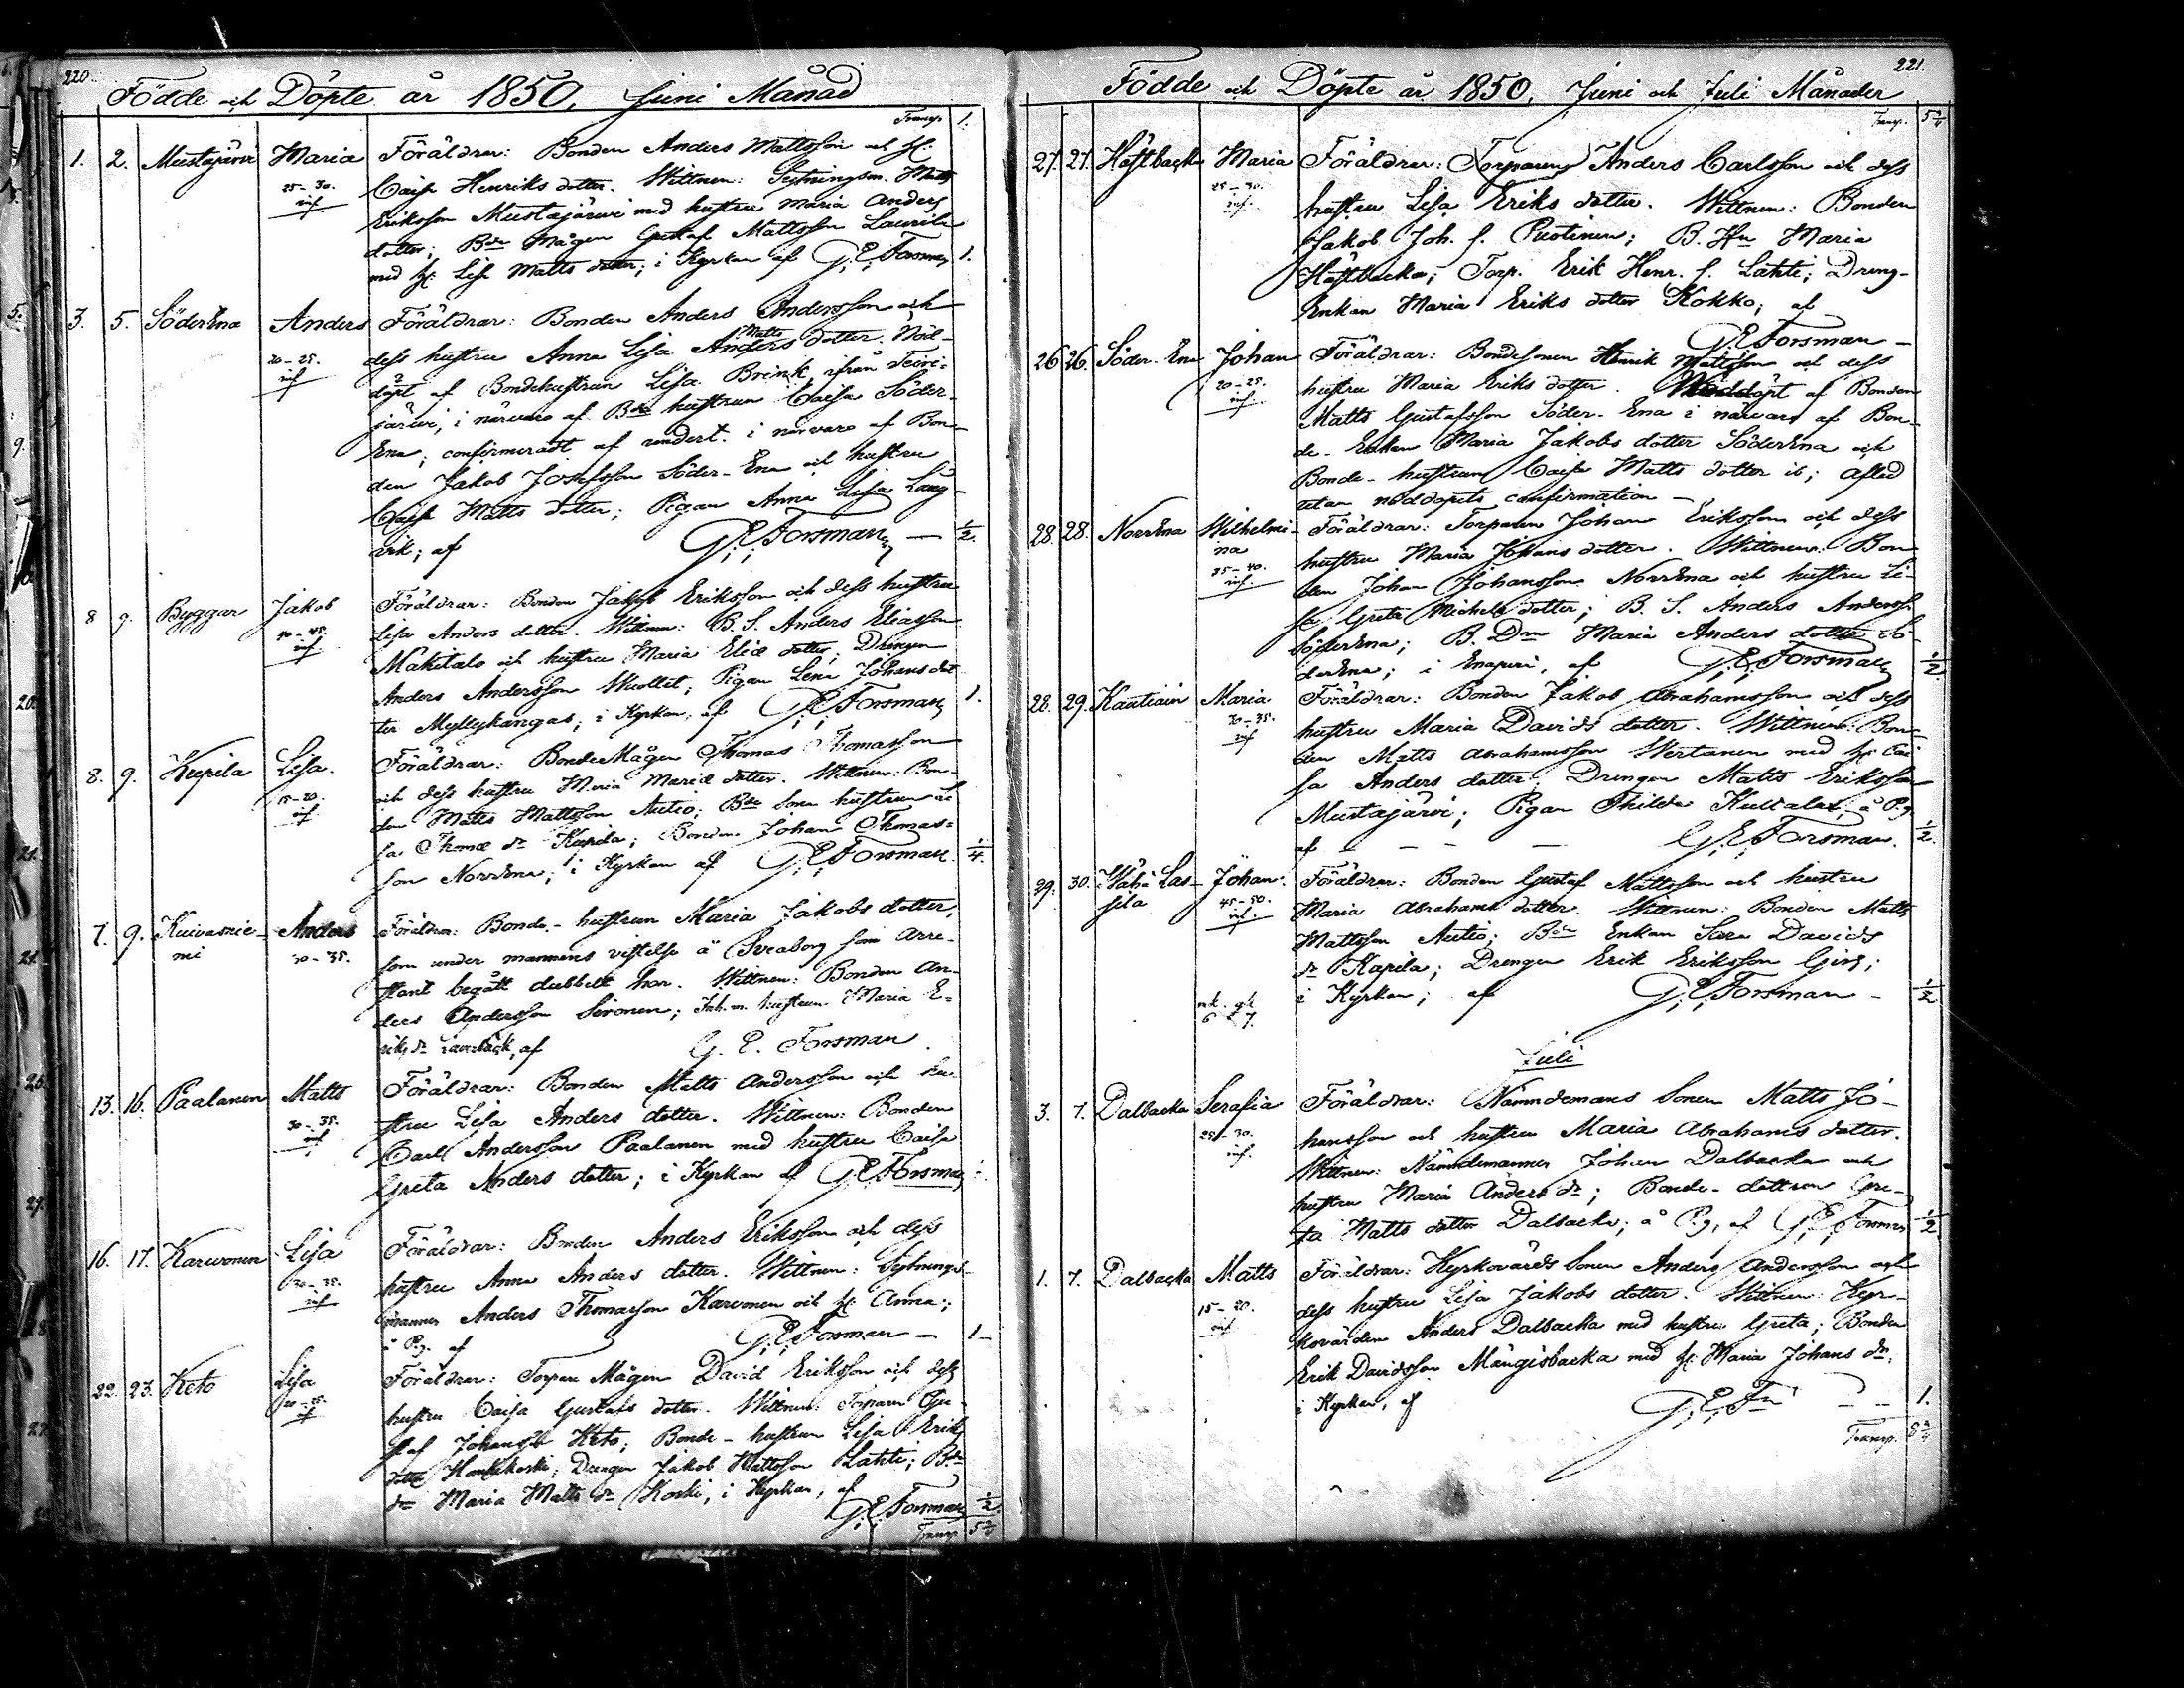 220.
Födde och Döpte år 1850, Juni Månad
Transp. 1.
1. 2. Mustajärvi Maria Föräldrar: Bonden Anders Mattsson och H:
25-30. inf.
Caisa Henriks dotter. Wittnen: Sytningsm. Matts
Eriksson Mustajärvi med hustru Maria Anders
dotter; Bde Mågen Gustaf Mattsson Laurila
med H: Lisa Matts dotter; i Kyrkan af G. E. Forsman 1.
3. 5. SöderEna Anders Föräldrar: Bonden Anders Andersson och
20-25. inf
dess hustru Anna Lisa Anders Matts dotter. Nöd-
döpt af Bondehustrun Lisa Brink ifrån Teiri-
järvi, i närvaro af Bde hustrun Caisa Söder-
Ena; confirmeradt af undert. i närvaro af Bon-
den Jakob Josefsson Söder-Ena och hustru
Caisa Matts dotter; Pigan Anna Lisa Lång-
vik; af G. E. Forsman — 1/2.
8 9. Byggar Jakob Föräldrar: Bonden Jakob Eriksson och dess hustru
40-45. inf.
Lisa Anders dotter. Wittnen: B. S. Anders Eliasson
Mäkitalo och hustru Maria Eliæ dotter; Drengen
Anders Andersson Wuollet; Pigan Lena Johans dot-
ter Myllykangas; i Kyrkan, af G. E. Forsman 1.
8. 9. Kupila Lisa. Föräldrar: BondeMågen Thomas Thomasson
15-20. inf
och dess hustru Maria Mariæ dotter. Wittnen: Bon-
den Matts Mattsson Autio; Bde Sone hustrun Li-
sa Thomæ dr Kupila; Bonden Johan Thomas-
son NorrEna; i Kyrkan af G. E. Forsman. 1/4.
7. 9. Kuivasnie- Anders Föräldrar: Bonde-hustrun Maria Jakobs dotter,
mi 30-35.
som under mannens vistelse å Sveaborg som Arre-
stant begått dubbelt hor. Wittnen: Bonden An-
ders Andersson Sironen; Inh.m. hustrun Maria E-
riks dr Laurbäck, af G. E. Forsman.
13. 16. Paalanen Matts Föräldrar: Bonden Matts Andersson och hu-
30-35. inf
stru Lisa Anders dotter. Wittnen: Bonden
Carl Andersson Paalanen med hustru Caisa
Greta Anders dotter; i Kyrkan af G. E. Forsman
16. 17. Karvonen Lisa Föräldrar: Bonden Anders Eriksson och dess
30-35. inf
hustru Anna Anders dotter. Wittnen: Sytnings-
mannen Anders Thomasson Karvonen och H: Anna;
å P.g. af G. E. Forsman — 1-
22. 23. Keto Lisa Föräldrar: Torpare Mågen David Eriksson och dess
20-25. inf
hustru Caisa Gustafs dotter. Wittnen: Torparen Gu-
staf Johansson Keto; Bonde-hustrun Lisa Eriks
dotter; Drengen Jakob Mattsson Lahti; Bde
dr Maria Matts dr Koski, i Kyrkan, af
G. E. Forsman 1/2.
Transp. 5 3/4
221.
Födde och Döpte år 1850, Juni och Juli Månader
Transp. 5 3/4
27. 27. Häftbacka Maria Föräldrar: Torparen Anders Carlsson och dess
25-30. inf.
hustru Lisa Eriks dotter. Wittnen: Bonden
Jakob Joh. s. Puotinen; B. Hu Maria
Häftbacka; Torp. Erik Henr. s. Lahti; Dreng-
Enkan Maria Eriks dotter Kokko; af
G. E. Forsman —
26 26. Söder-Ena Johan Föräldrar: Bondesonen Henrik Mattsson och dess
20-25. inf.
hustru Maria Eriks dotter. Nöddöpt af Bonden
Matts Gustafsson Söder-Ena i närvaro af Bon-
de-Enkan Maria Jakobs dotter SöderEna och
Bonde-hustrun Caisa Matts dotter ib; Afled
utan nöddopets confirmation —
28. 28. NorrEna Wilhelmi- Föräldrar: Torparen Johan Eriksson och dess
na 35-40. inf.
hustru Maria Johans dotter. Wittnen: Bon-
den Johan Johansson NorrEna och hustru Li-
sa Greta Michels dotter; B. S. Anders Anderss.
SöderEna; B. Drn Maria Anders dotter Sö-
derEna; i Enaperä, af G. E. Forsman 1/2
28. 29. Kaatiain Maria Föräldrar: Bonden Jakob Abrahamsson och dess
30-35. inf
hustru Maria Davids dotter. Wittnen: Bon-
den Matts Abrahamsson Wertanen med H: Cai-
sa Anders dotter; Drengen Matts Eriksson
Mustajärvi; Pigan Thilda; å P.g.
af — — — G. E. Forsman. 1/2.
29. 30. Wähä Las- Johan. Föräldrar: Bonden Gustaf Mattsson och hustru
sila 45-50. inf.
Maria Abrahams dotter. Wittnen: Bonden Matts
Mattsson Autio; Bde Enkan Sara Davids
dr Kapila; Drengen Erik Eriksson Girs;
i Kyrkan; af G. E. Forsman — 1/2
Juli
3. 7. Dalbacka Serafia Föräldrar: Nämndemans Sonen Matts Jo-
25-30. inf.
hansson och hustru Maria Abrahams dotter.
Wittnen: Nämndemannen Johan Dalbacka och
hustru Maria Anders dr; Bonde-dottren Gre-
ta Matts dotter Dalbacka; å P.g. af G. E. Forsman 1/2
1. 7. Dalbacka Matts Föräldrar: Kyrkovärds Sonen Anders Andersson och
15-20. inf
dess hustru Lisa Jakobs dotter. Wittnen: Kyr-
kovärden Anders Dalbacka med hustru Greta; Bonden
Erik Davidsson Mängisbacka med H: Maria Johans dr;
i Kyrkan, af G. E. Fn — — 1.
Transp. 8 3/4